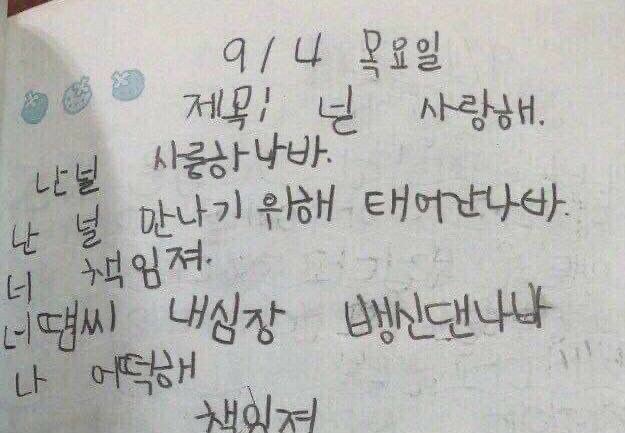 9/4 목요일
제목! 널 사랑해.
난널 사릉하나바.
난 널 만나기 위해 태어간나바.
너 책임져.
너땜씨 내심장 뱅신댄나바
나 어떡해
책임져